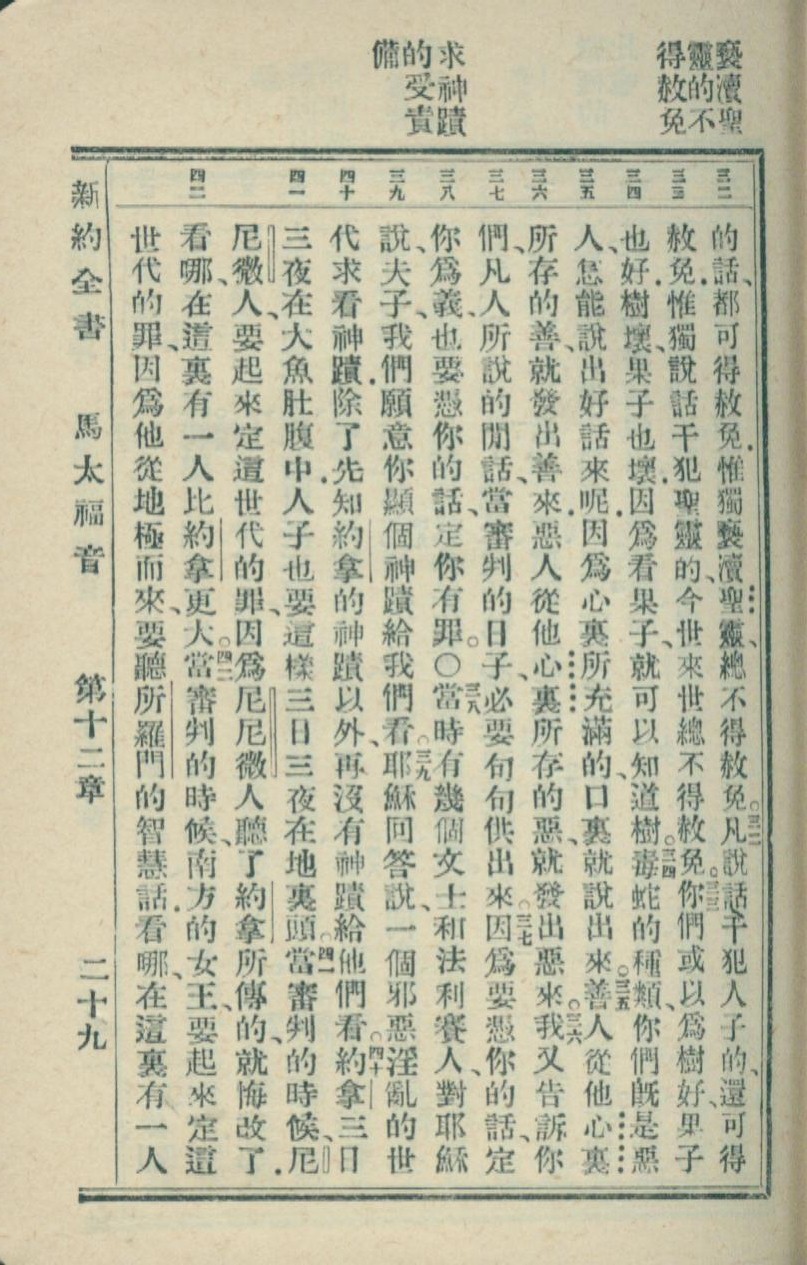 褻瀆聖
靈的不
得赦免
求神蹟
的受責
備
三二
三三
三四
三五
三六
三七
三八
三九
四十
四一
四二
的話、都可得赦免．惟獨褻瀆聖靈、總不得赦免。三二凡說話干犯人子的、還可得
赦免．惟獨說話干犯聖靈的、今世來世總不得赦免。三三你們或以爲樹好、果子
也好．樹壞、果子也壞．因爲看果子、就可以知道樹。三四毒蛇的種類、你們旣是惡
人、怎能說出好話來呢．因爲心裏所充滿的、口裏就說出來。三五善人從他心裏
所存的善、就發出善來．惡人從他心裏所存的惡、就發出惡來。三六我又告訴你
們、凡人所說的閒話、當審判的日子、必要句句供出來。三七因爲要憑你的話、定
你爲義、也要憑你的話、定你有罪。〇三八當時有幾個文士和法利賽人、對耶穌
說、夫子、我們願意你顯個神蹟給我們看。三九耶穌回答說、一個邪惡淫亂的世
代求看神蹟．除了先知約拿的神蹟以外、再沒有神蹟給他們看。四十約拿三日
三夜在大魚肚腹中．人子也要這樣三日三夜在地裏頭。四一當審判的時候、尼
尼微人、要起來定這世代的罪、因爲尼尼微人聽了約拿所傳的、就悔改了．
看哪、在這裏有一人比約拿更大。四二當審判的時候、南方的女王、要起來定這
世代的罪、因爲他從地極而來、要聽所羅門的智慧話．看哪、在這裏有一人
新約全書　馬太福音　第十二章　二十九